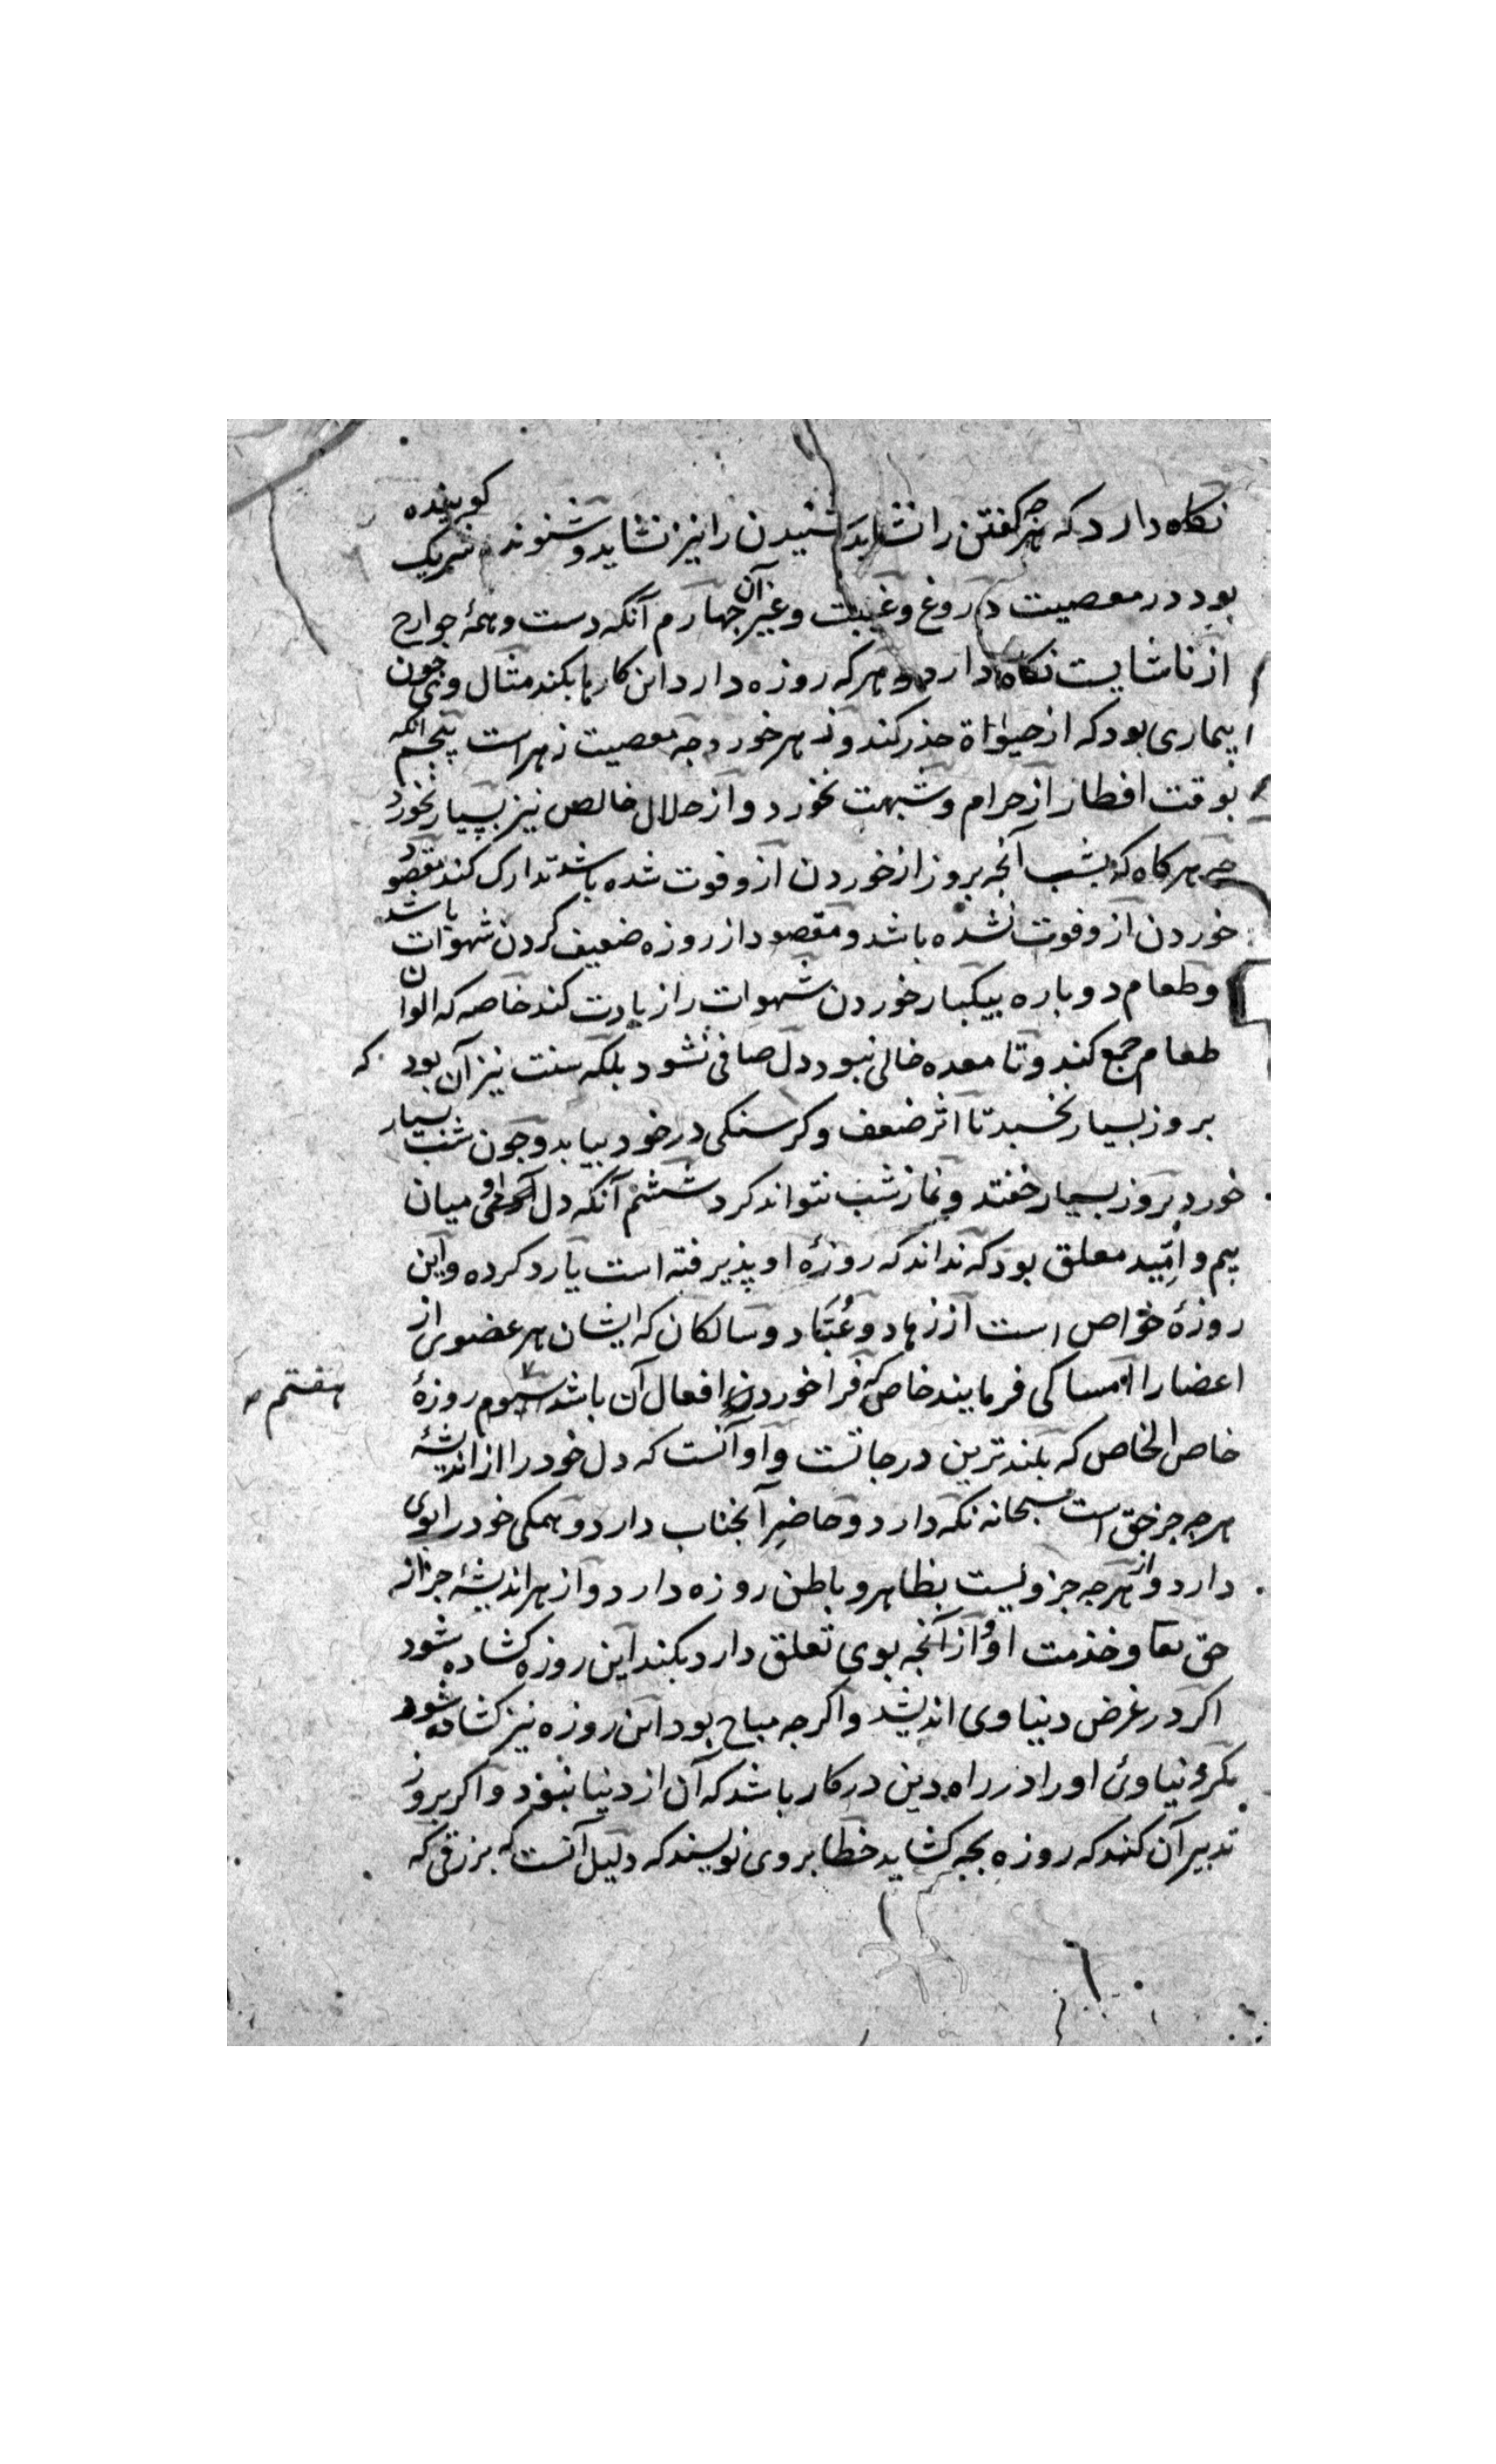 نکاه دارد که هرچه کفتن را نشاید شنیدن را نیز نشاید و شنونده شریک کوینده
بود در معصیت دروغ و غیبت و غیر آن چهارم آنکه دست و همهٔ جوارح
از ناشایست نکاه دارد و هرکه روزه دارد این کارها بکند مثال وی چون
بیماری بود که از میوه حذر کند و زهر خورد چه معصیت زهر است پنجم آنکه
بوقت افطار از حرام و شبهت نخورد و از حلال خالص نیز بسیار نخورد
چه هرکاه که بشب آنچه بروز از خوردن ازو فوت شده باشد تدارک کند مقصود
خوردن ازو فوت نشده باشد و مقصود از روزه ضعیف کردن شهوات باشد
و طعام دوباره بیکبار خوردن شهوات را زیادت کند خاصه که الوان
طعام جمع کند و تا معده خالی نبود دل صافی نشود بلکه سنت نیز آن بود که
بروز بسیار نخسبد تا اثر ضعف و کرسنکی در خود بیابد و چون شب بسیار
خورد بروز بسیار خفتد و نماز شب نتواند کرد ششم آنکه دل او میان
بیم و امّید معلق بود که نداند که روزهٔ او پذیرفته است یا رد کرده و این
روزهٔ خواص است از زهاد و عُبّاد و سالکان که ایشان هر عضوی از
اعضا را امساکی فرمایند خاص که فراخور افعال آن باشد سیوم روزهٔ
هفتم
خاص الخاص که بلندترین درجاتست و او آنست که دل خود را از اندیشهٔ
هرچه جز حق است سبحانه نکه دارد و حاضرِ آنجناب دارد و همکی خود را بوی
دارد و از هرچه جز ویست بظاهر و باطن روزه دارد و از هر اندیشهٔ جز از
حق تعا و خذمت او و از آنچه بوی تعلق دارد بکند این روزه کشاده شود
اکر در غرض دنیاوی اندیشد و اکرچه مباح بود این روزه نیز کشاده شود
مکر دنیاوئ او را در راه دین در کار باشد که آن از دنیا نبود و اکر بروز
تدبیر آن کند که روزه بچه کشاید خطا بروی نویسند که دلیل آنست که برزقی که